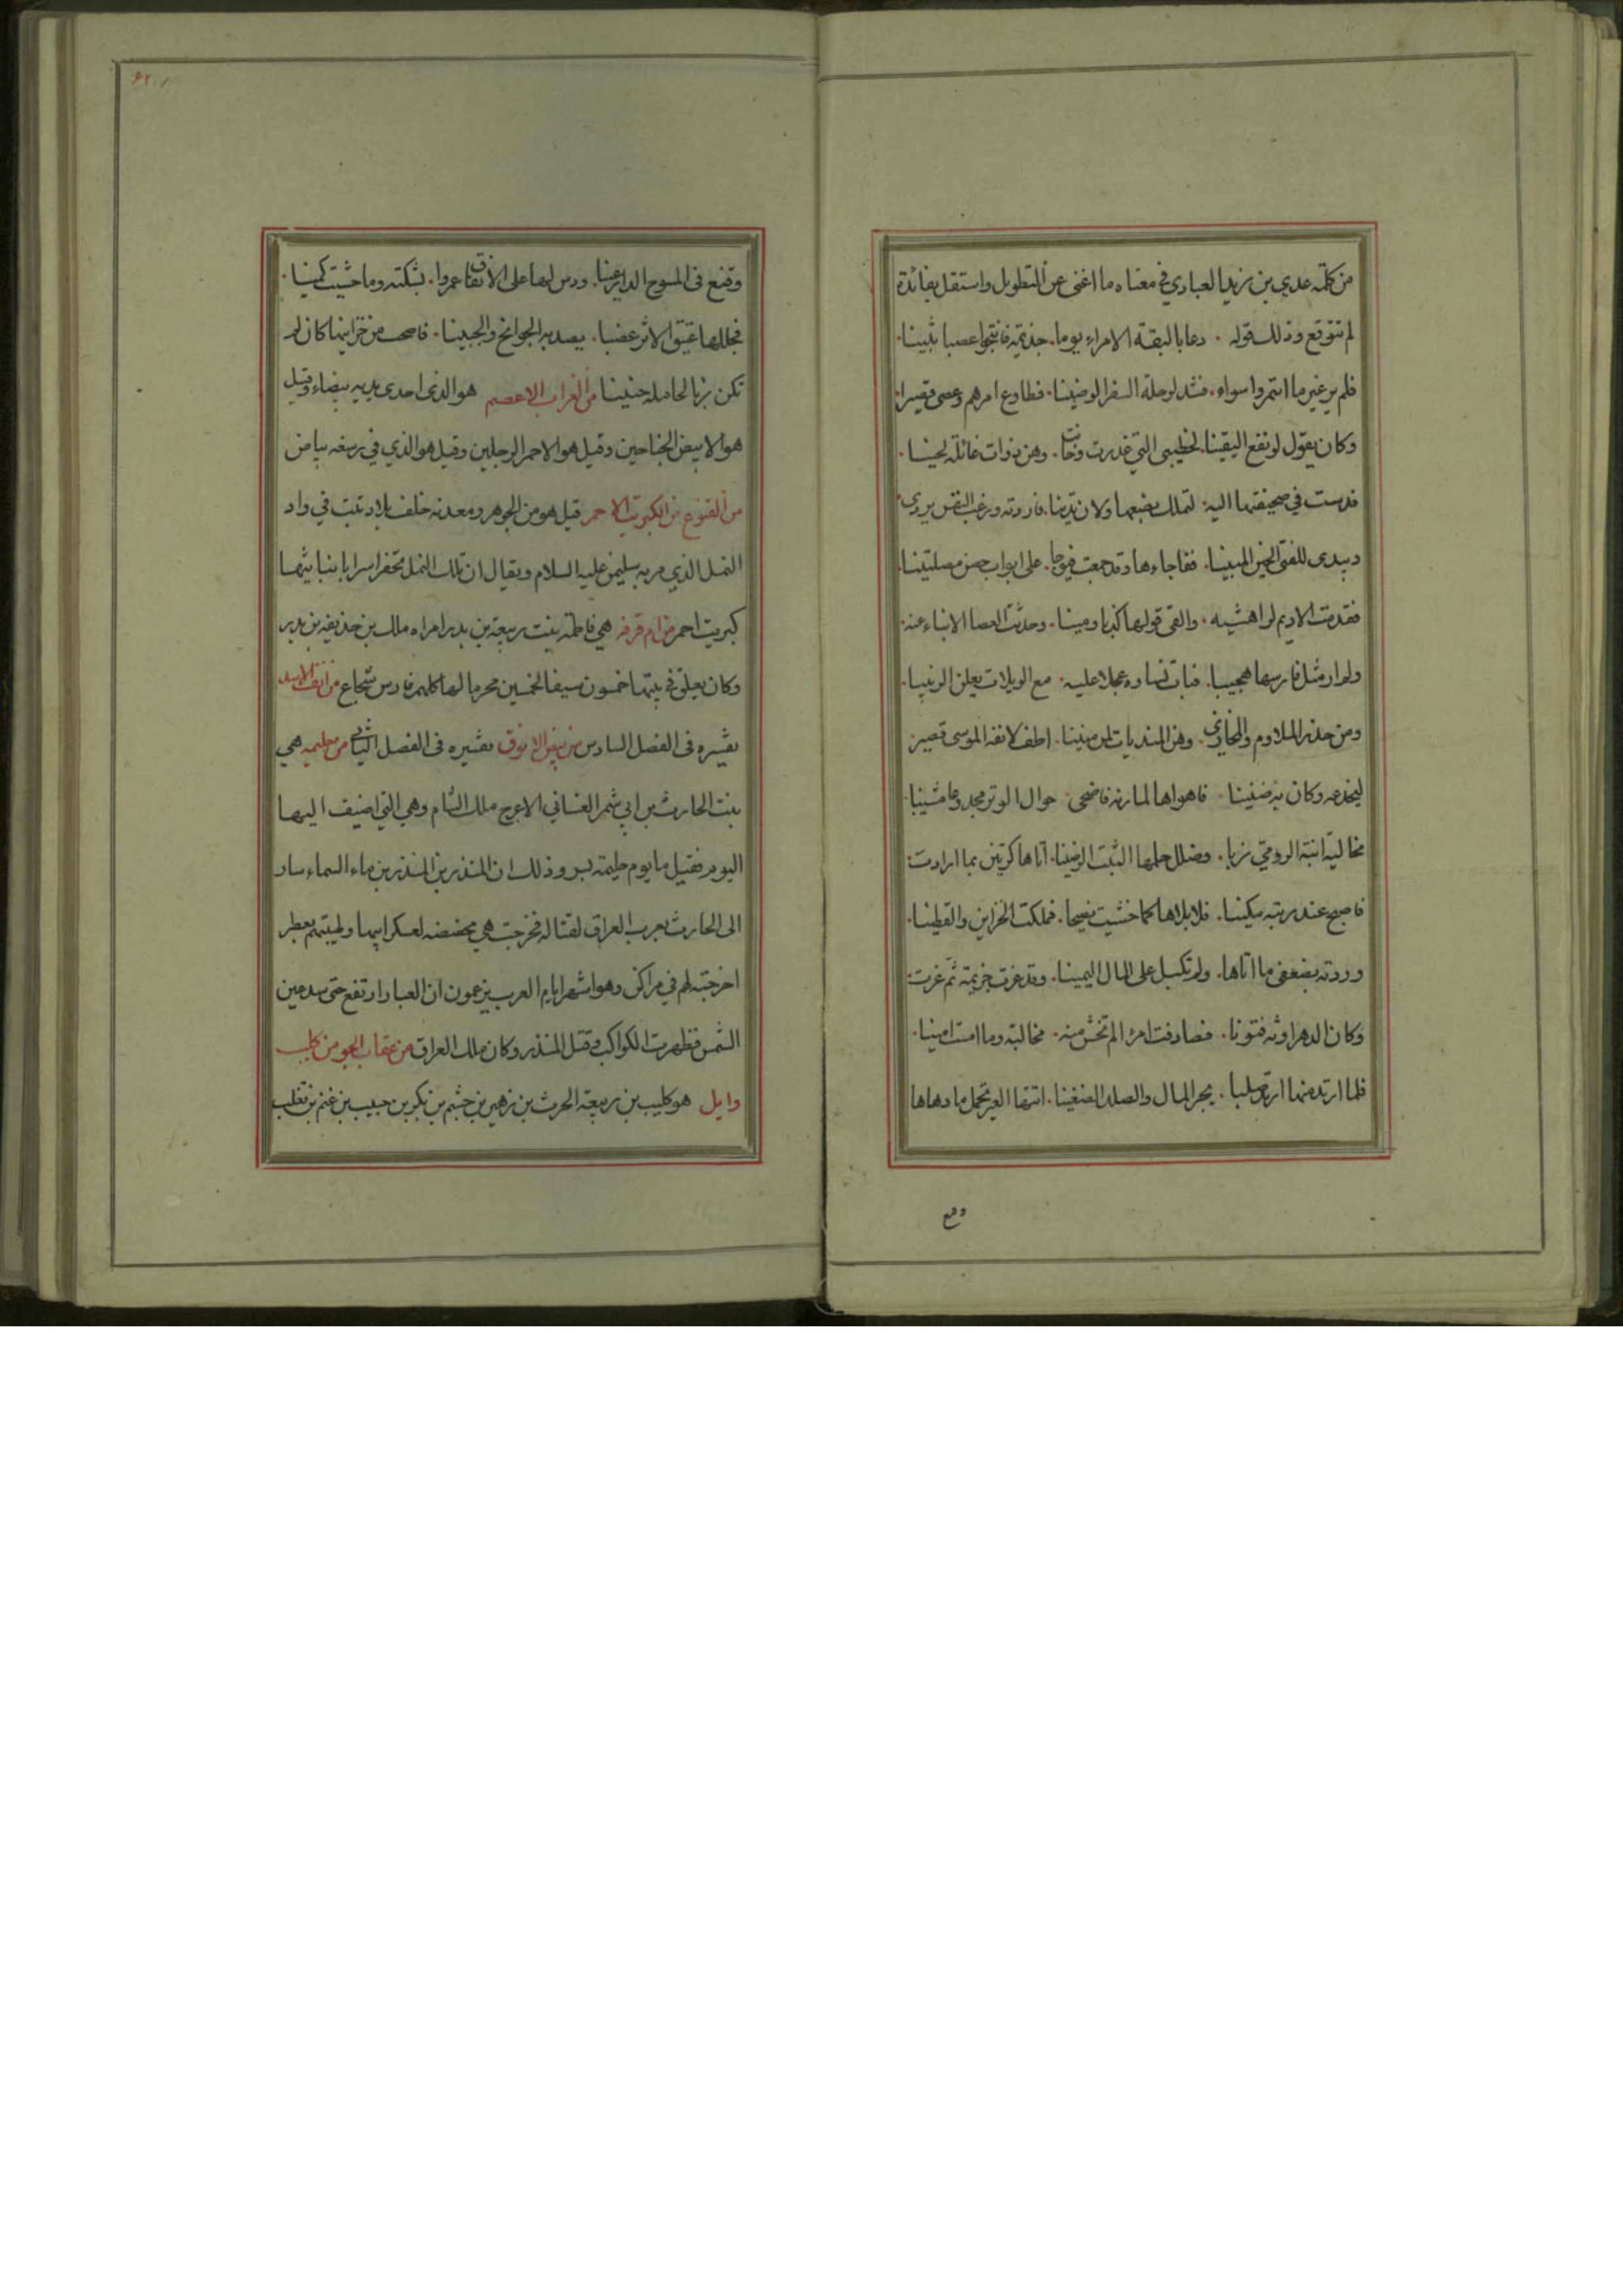 من كلمة عدي بن زيد العبادي في معناه ما اغنى عن التطويل واستقل بفائدة
لم تتوقع وذلك قوله . دعا بالبقة الامراء يوما . جذيمة فانتجوا عصبا ثبينا .
فلم ير غير ما ائتمروا سواه . فشد لرحلة السفر الوضينا . فطاوع امرهم وعصى قصيرا .
وكان يقول لو نفع اليقينا . لخطيبى التي غدرت وخانت . وهن ذوات غائلة لحينا .
فدست في صحيفتها اليه . لتملك بضعها ولان تدينا . فاردته ورغب النفس يردى
ويبدى للفتى الحين المبينا . ففاجاءها وقد جمعت فيوجا . على ابواب حصن مصلتينا .
فقدمت الاديم لراهشيه . والفى قولها كذبا ومينا . وحدثت العصا الانباء عنه .
ولم ار مثل فارسها هجينا . فبات نساوه عجلا عليه . مع الويلات يعلن الرنينا .
ومن حذر الملاوم والمخازي . وهن المنديات لمن منينا . اطف لانفه الموسى قصير
ليخدعه وكان به ضنينا . فاهواها لمارنه فاضحى . حوال الوتر مجدوعا مشينا
مخاليه ابنة الرومي زبا . وضلل حلمها الثبت الرضينا . اتاها كرتين بما ارادت .
فاصبح عند ربته مكينا . فلا بلاها كما خشيت نصيحا . فملكت الخزاين والقطينا .
وردته بضعفى ما اتاها . ولم تكبل على المال اليمينا . وقد غرت جزيمة ثم غرت .
وكان الدهر اوثه فتونا . فصادفت امرءا لم تخش منه . مخالبته وما امنت امينا .
فلما ارتد منها ارتد صلبا . يجر المال والصلد الضغينا . اتتها العير تحمل ما دهاها
وقع
وقنع في المسوح الدارعينا . ودس لها على الانفاق عمروا . بشكته وما خشيت كمينا .
فجللها عتيق الاثر عضبا . يصد به الجوانح والجبينا . فاصحت من خزاينها كان لم
تكن زبا لحامله جنينا من الغراب الاعصم هو الذى احدى يديه بيضاء وقيل
هو الابيض الجناحين وقيل هو الاحمر الرجلين وقيل هو الذي في رسغه بياض
من القنوع من الكبريت الاحمر قيل هو من الجوهر ومعدنه خلف بلاد تبت في واد
النمل الذي مر به سليمن عليه السلام ويقال ان تلك النمل تحفر اسرابا بنباتيها
كبريت احمر من ام قرفه هي فاطمة بنت ربيعة بن بدر امراه ملك بن حذيفه بن بدر
وكان يعلق في بيتها خمسون سيفا لخمسين محرما لها كلهم فارس شجاع من انف الاسد
تفسيره في الفصل السادس من بيض الانوق تفسيره في الفصل الثاني من حليمه هي
بنت الحارث بن ابي شمر الغساني الاعرج ملك الشام وهي التي اضيف اليها
اليوم فقيل ما يوم حليمة بسر وذلك ان المنذر بن المنذر بن ماء السماء سار
الى الحارث بعرب العراق لقتاله فخرجت هي محضضه لعسكر ابيها وطيبتهم بعطر
اخرجته لهم في مراكن وهو اشهر ايام العرب يزعمون ان الغبار ارتفع حتى سد عين
الشمس فظهرت الكواكب وقتل المنذر وكان ملك العراق من عقاب الجو من كليب
وايل هو كليب بن ربيعة الحرث بن زهير بن جشم بن بكر بن حبيب بن غنم بن تغلب